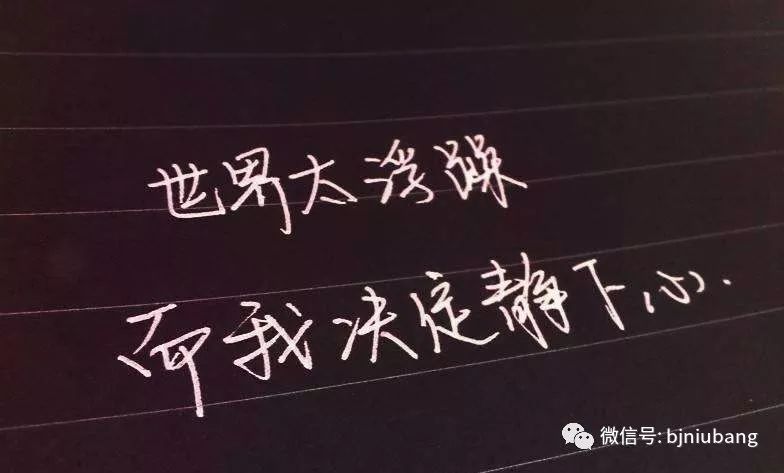 世界太浮躁
而我决定静下心.
微信号: bjniubang